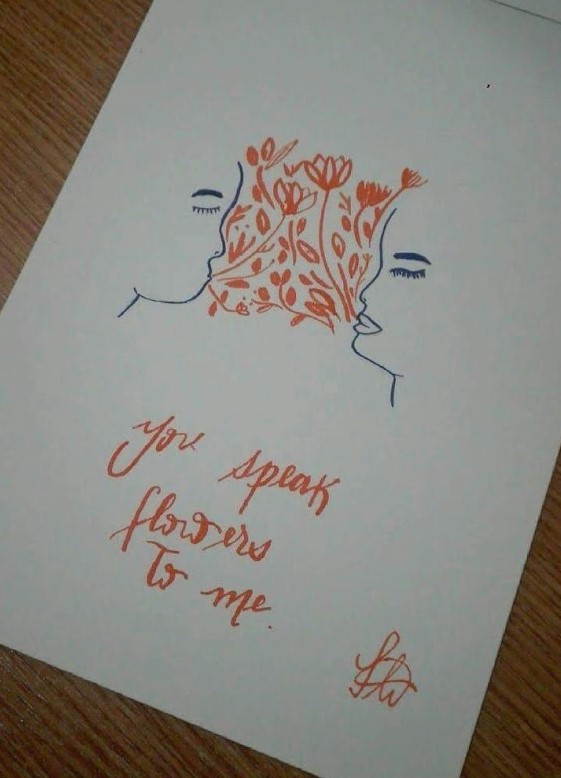 you speak
flowers
To me.